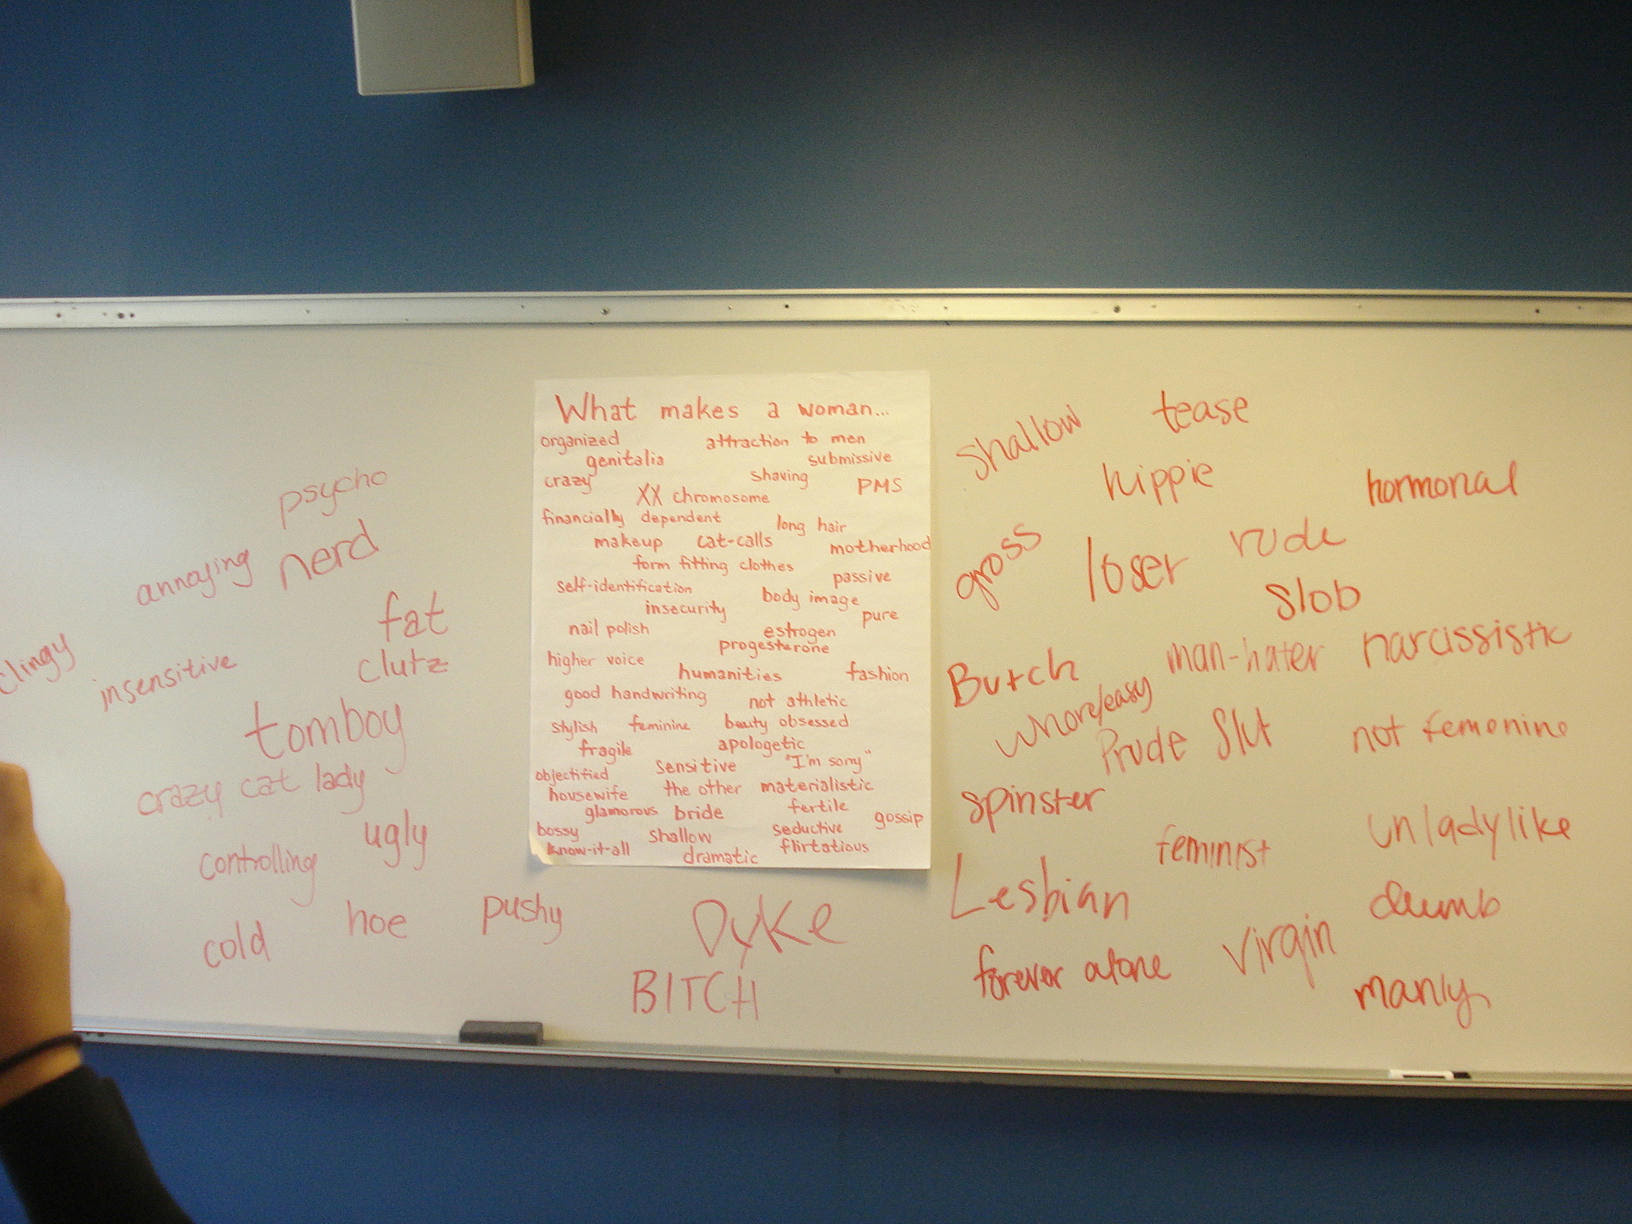 What makes a woman...
organized attraction to men
genitalia submissive
crazy shaving PMS
XX chromosome
financially dependent long hair
makeup cat-calls motherhood
form fitting clothes
self-identification passive
insecurity body image
nail polish estrogen pure
progesterone
higher voice humanities fashion
good handwriting not athletic
stylish feminine beauty obsessed
fragile apologetic
objectified sensitive "I'm sorry"
housewife the other materialistic
glamorous bride fertile gossip
bossy shallow seductive
know-it-all dramatic flirtatious
psycho
annoying nerd
fat
clingy insensitive clutz
tomboy
crazy cat lady
ugly
controlling
cold hoe pushy
Dyke
BITCH
shallow tease
hippie hormonal
gross loser rude
slob
Butch man-hater narcissistic
whore/easy Prude Slut not femenine
spinster
feminist unladylike
Lesbian dumb
forever alone virgin
manly